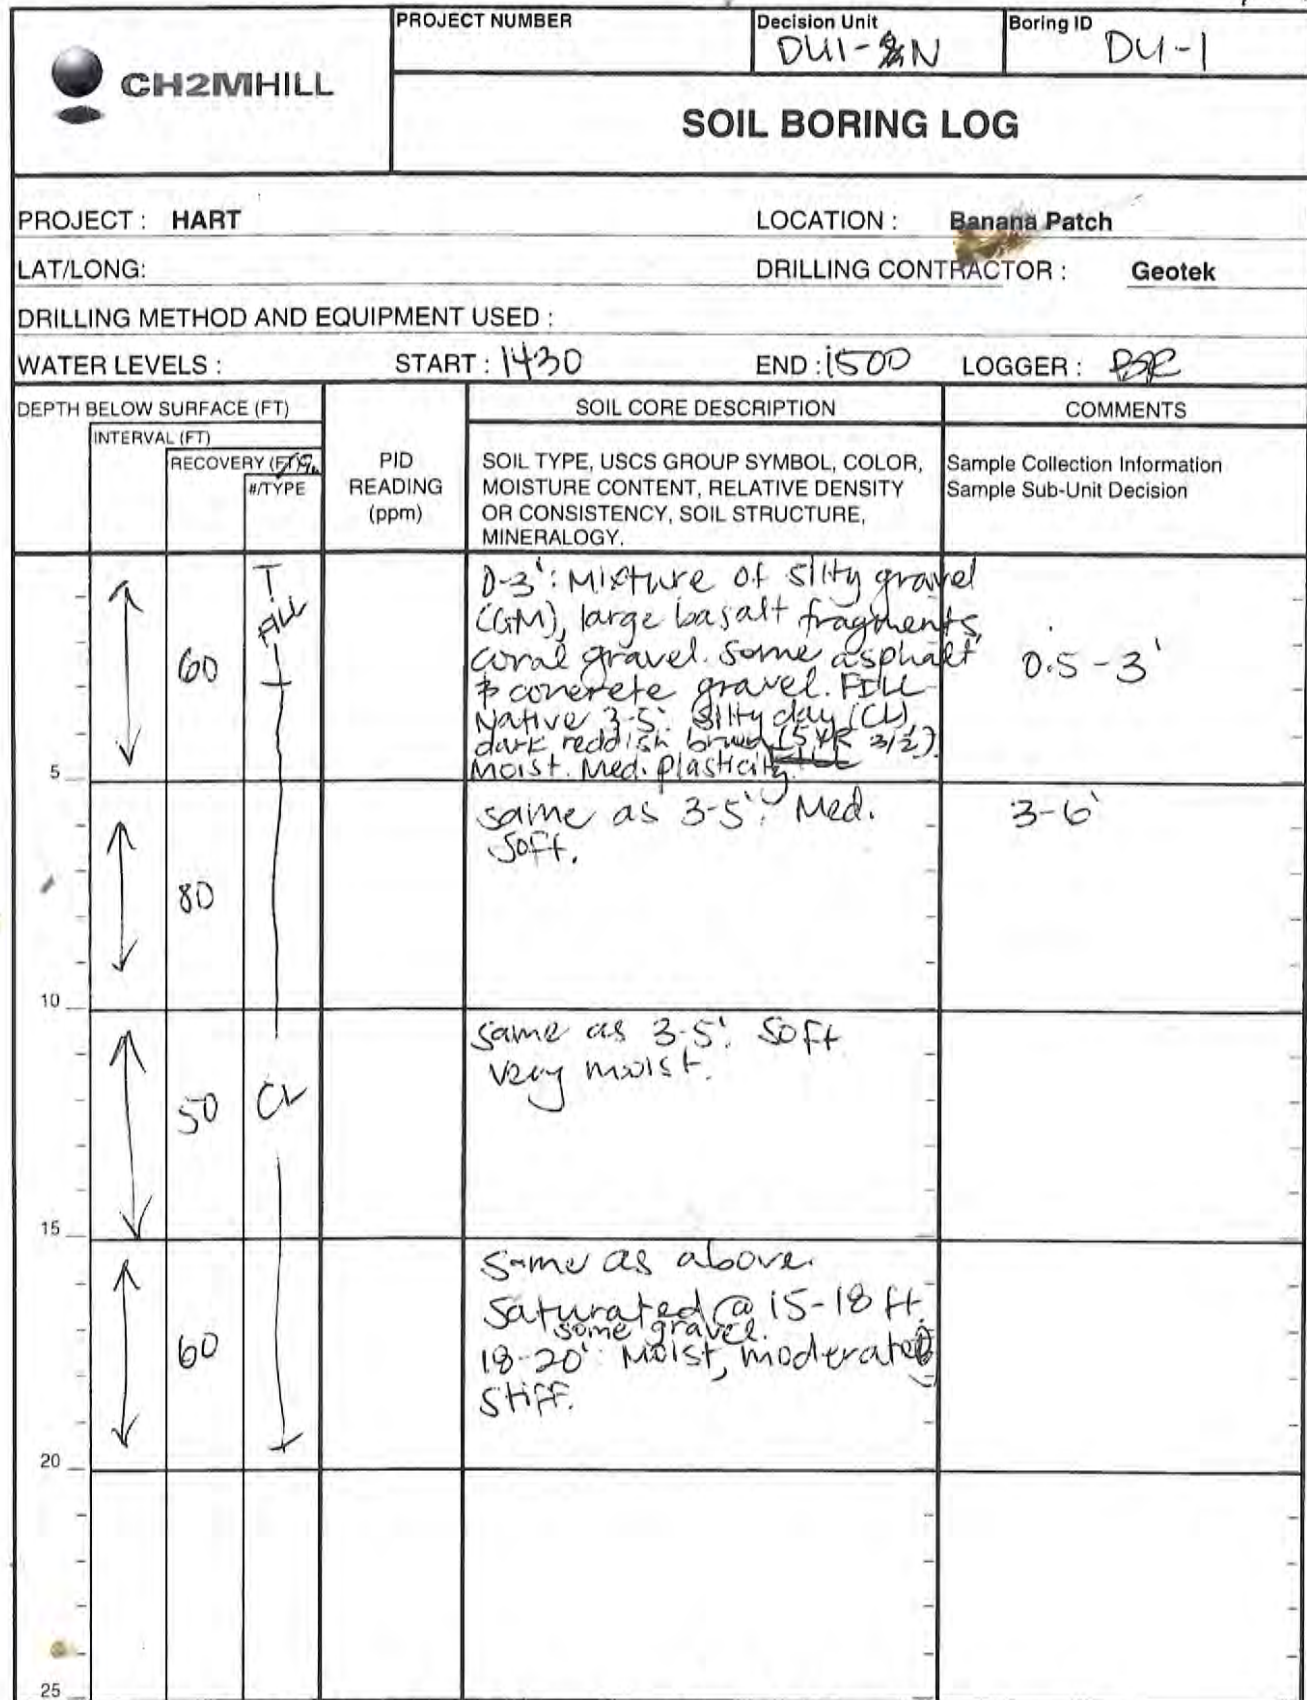 CH2MHILL
PROJECT NUMBER
Decision Unit
DU1- N
Boring ID
DU-1
SOIL BORING LOG
PROJECT : HART
LOCATION : Banana Patch
LAT/LONG:
DRILLING CONTRACTOR : Geotek
DRILLING METHOD AND EQUIPMENT USED :
WATER LEVELS : START : 1430 END : 1500 LOGGER :
DEPTH BELOW SURFACE (FT)
INTERVAL (FT)
RECOVERY
#/TYPE
PID
READING
(ppm)
SOIL CORE DESCRIPTION
SOIL TYPE, USCS GROUP SYMBOL, COLOR,
MOISTURE CONTENT, RELATIVE DENSITY
OR CONSISTENCY, SOIL STRUCTURE,
MINERALOGY.
COMMENTS
Sample Collection Information
Sample Sub-Unit Decision
60
FILL
0-3': Mixture of silty gravel
(GM), large basalt fragments,
coral gravel. Some asphalt
& concrete gravel. FILL
Native 3-5': Silty clay (CL),
dark reddish brown (5YR 3/2).
Moist. Med. plasticity.
0.5-3'
5
80
same as 3-5'. Med.
soft.
3-6'
10
50
CL
same as 3-5'. Soft
very moist.
15
60
Same as above.
Saturated @ 15-18 ft.
some gravel.
18-20': Moist, moderately
stiff.
20
25